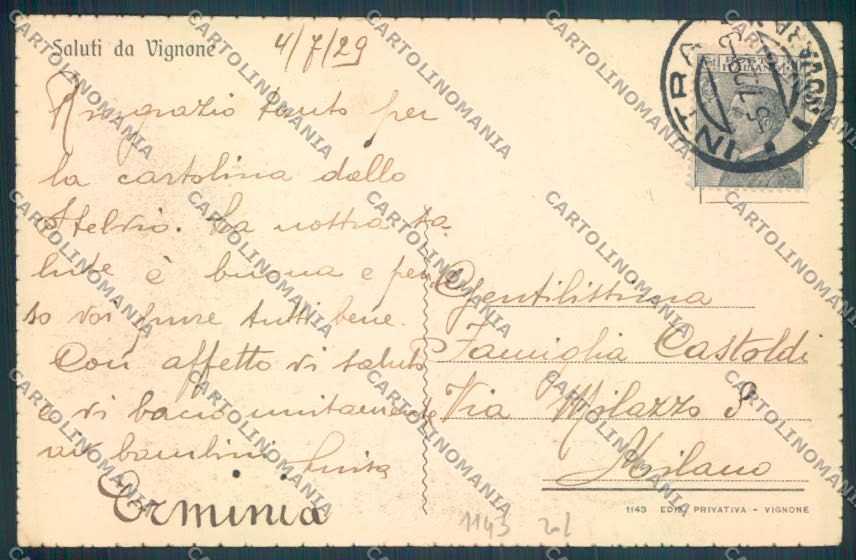 Saluti da Vignone
4/7/29
Ringrazio tanto per
la cartolina dallo
Stelvio. La nostra sa-
lute è buona e pen
so voi pure tutti bene.
Con affetto vi saluto
e vi bacio unitamente
ai bambini Luisa
Erminia
INTRA
Gentilissima
Famiglia Castoldi
Via Milazzo
Milano
1143 EDIZ. PRIVATIVA - VIGNONE
1143
CARTOLINOMANIA